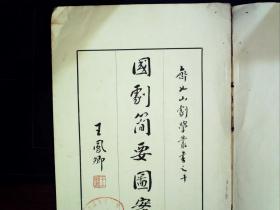 齊如山劇學叢書之十
國劇簡要圖案
王鳳卿